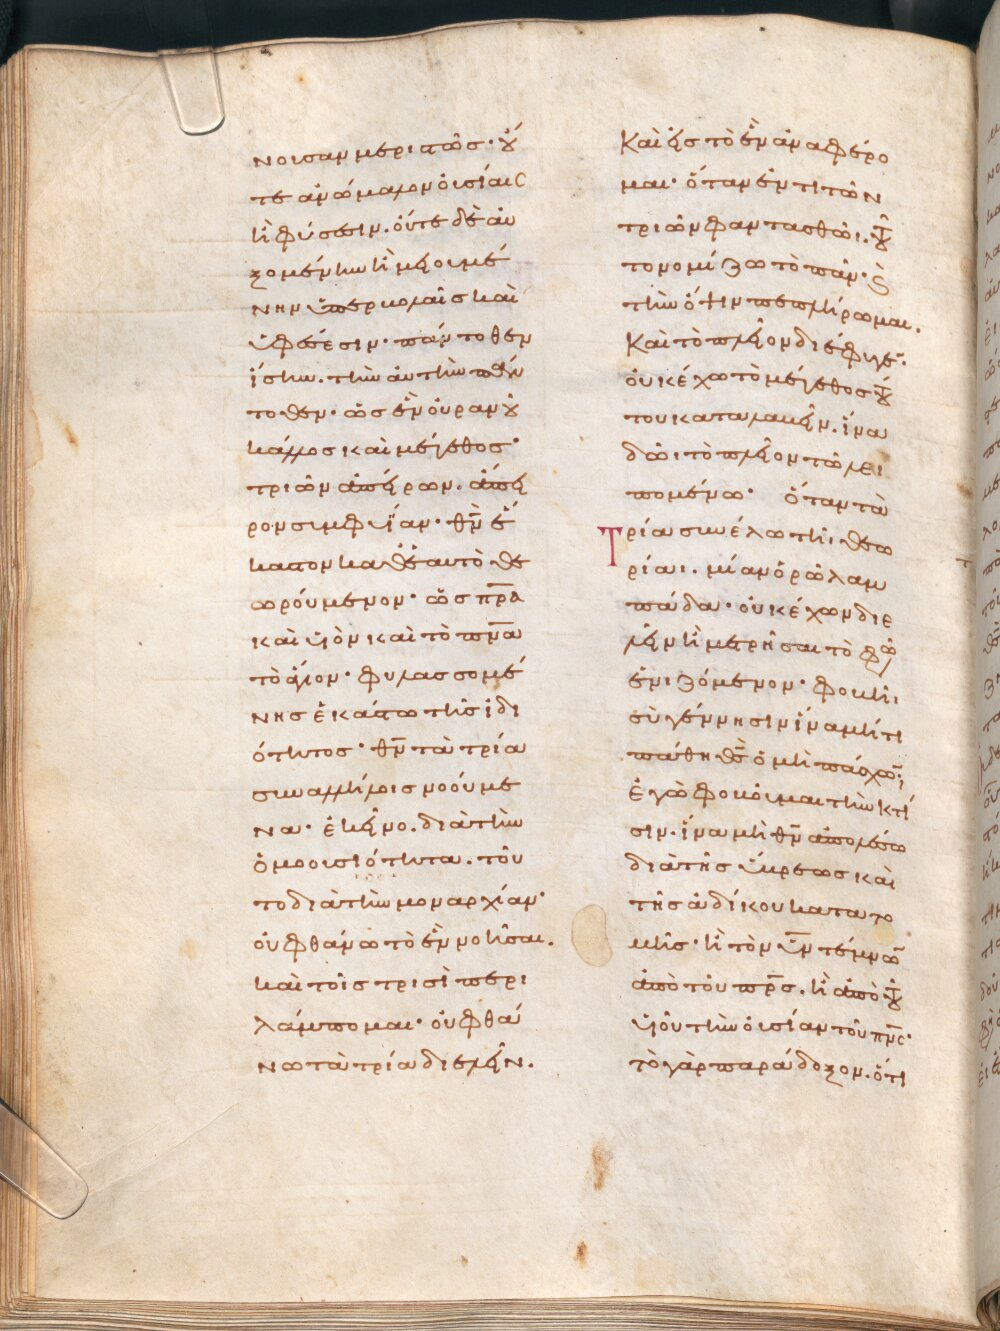 νουσαν μεριστῶς· οὔ
τε ἀνώμαλον οὐσίαις
ἢ φύσεσιν. οὔτε δὲ αὐ
ξομένην ἢ μειουμέ
νην ὑπερβολαῖς καὶ
ὑφέσεσιν. πάντοθεν
ἴσην. τὴν αὐτὴν πάν
τοθεν. ὡς ἓν οὐρανοῦ
κάλλος καὶ μέγεθος·
τριῶν ἀπείρων. ἄπει
ρον συμφυΐαν. θν̅ ἕ
καστον καθ' ἑαυτὸ θε
ωρούμενον· ὡς πρ̅α
καὶ υἱὸν καὶ τὸ πν̅α
τὸ ἅγιον· φυλασσομέ
νης ἑκάστω τῆς ἰδι
ότητος· θν̅ τὰ τρία
συν ἀλλήλοις νοούμε
να· ἐκεῖνο. διὰ τὴν
ὁμοουσιότητα. τοῦ
το διὰ τὴν μοναρχίαν·
οὐ φθάνω τὸ ἓν νοῆσαι.
καὶ τοῖς τρισὶ περι
λάμπομαι· οὐ φθά
νω τὰ τρία διελεῖν.
Καὶ εἰς τὸ ἓν ἀναφέρο
μαι· ὅταν ἕν τι τῶν
τριῶν φαντασθῶι. τοῦ
το νομίζω τὸ πᾶν· καὶ
τὴν ὄψιν πεπλήρωμαι.
Καὶ τὸ πλεῖον διέφυγε̅.
οὐκ έχω τὸ μέγεθος τού
του καταλαβεῖν. ἵνα
δῶι τὸ πλεῖον τῶ λει
πομένω· ὅταν τὰ
Τρία συνέλω τῆι θεω
ρίαι. μίαν ὁρῶ λαμ
πάδα· οὐκ έχων διε
λεῖν ἢ μετρῆσαι τὸ φῶς
ἑνιζόμενον· φοβῆι
σὺ γέννησιν ἵνα μή τι
πάθη θς̅ ὁ μὴ πάσχων;
ἐγὼ φοβοῦμαι τὴν κτί
σιν. ἵνα μὴ θν̅ ἀπολέσω
διὰ τῆς ὕβρεως καὶ
τῆς ἀδίκου κατατο
μῆς· ἢ τὸν υν̅ τέμνων
ἀπὸ τοῦ πρς̅. ἢ ἀπὸ τοῦ
υἱοῦ τὴν οὐσίαν τοῦ πνς̅·
τὸ γὰρ παράδοξον. ὅτι